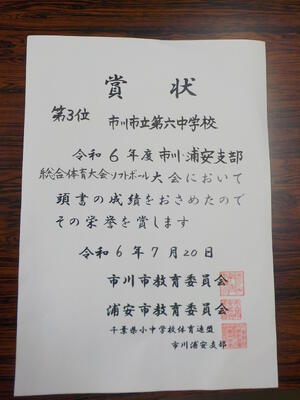 賞状
第3位 市川市立第六中学校
令和6年度市川・浦安支部
総合体育大会ソフトボール大会において
頭書の成績をおさめたので
その栄誉を賞します
令和6年7月20日
市川市教育委員会
浦安市教育委員会
千葉県小中学校体育連盟
市川浦安支部